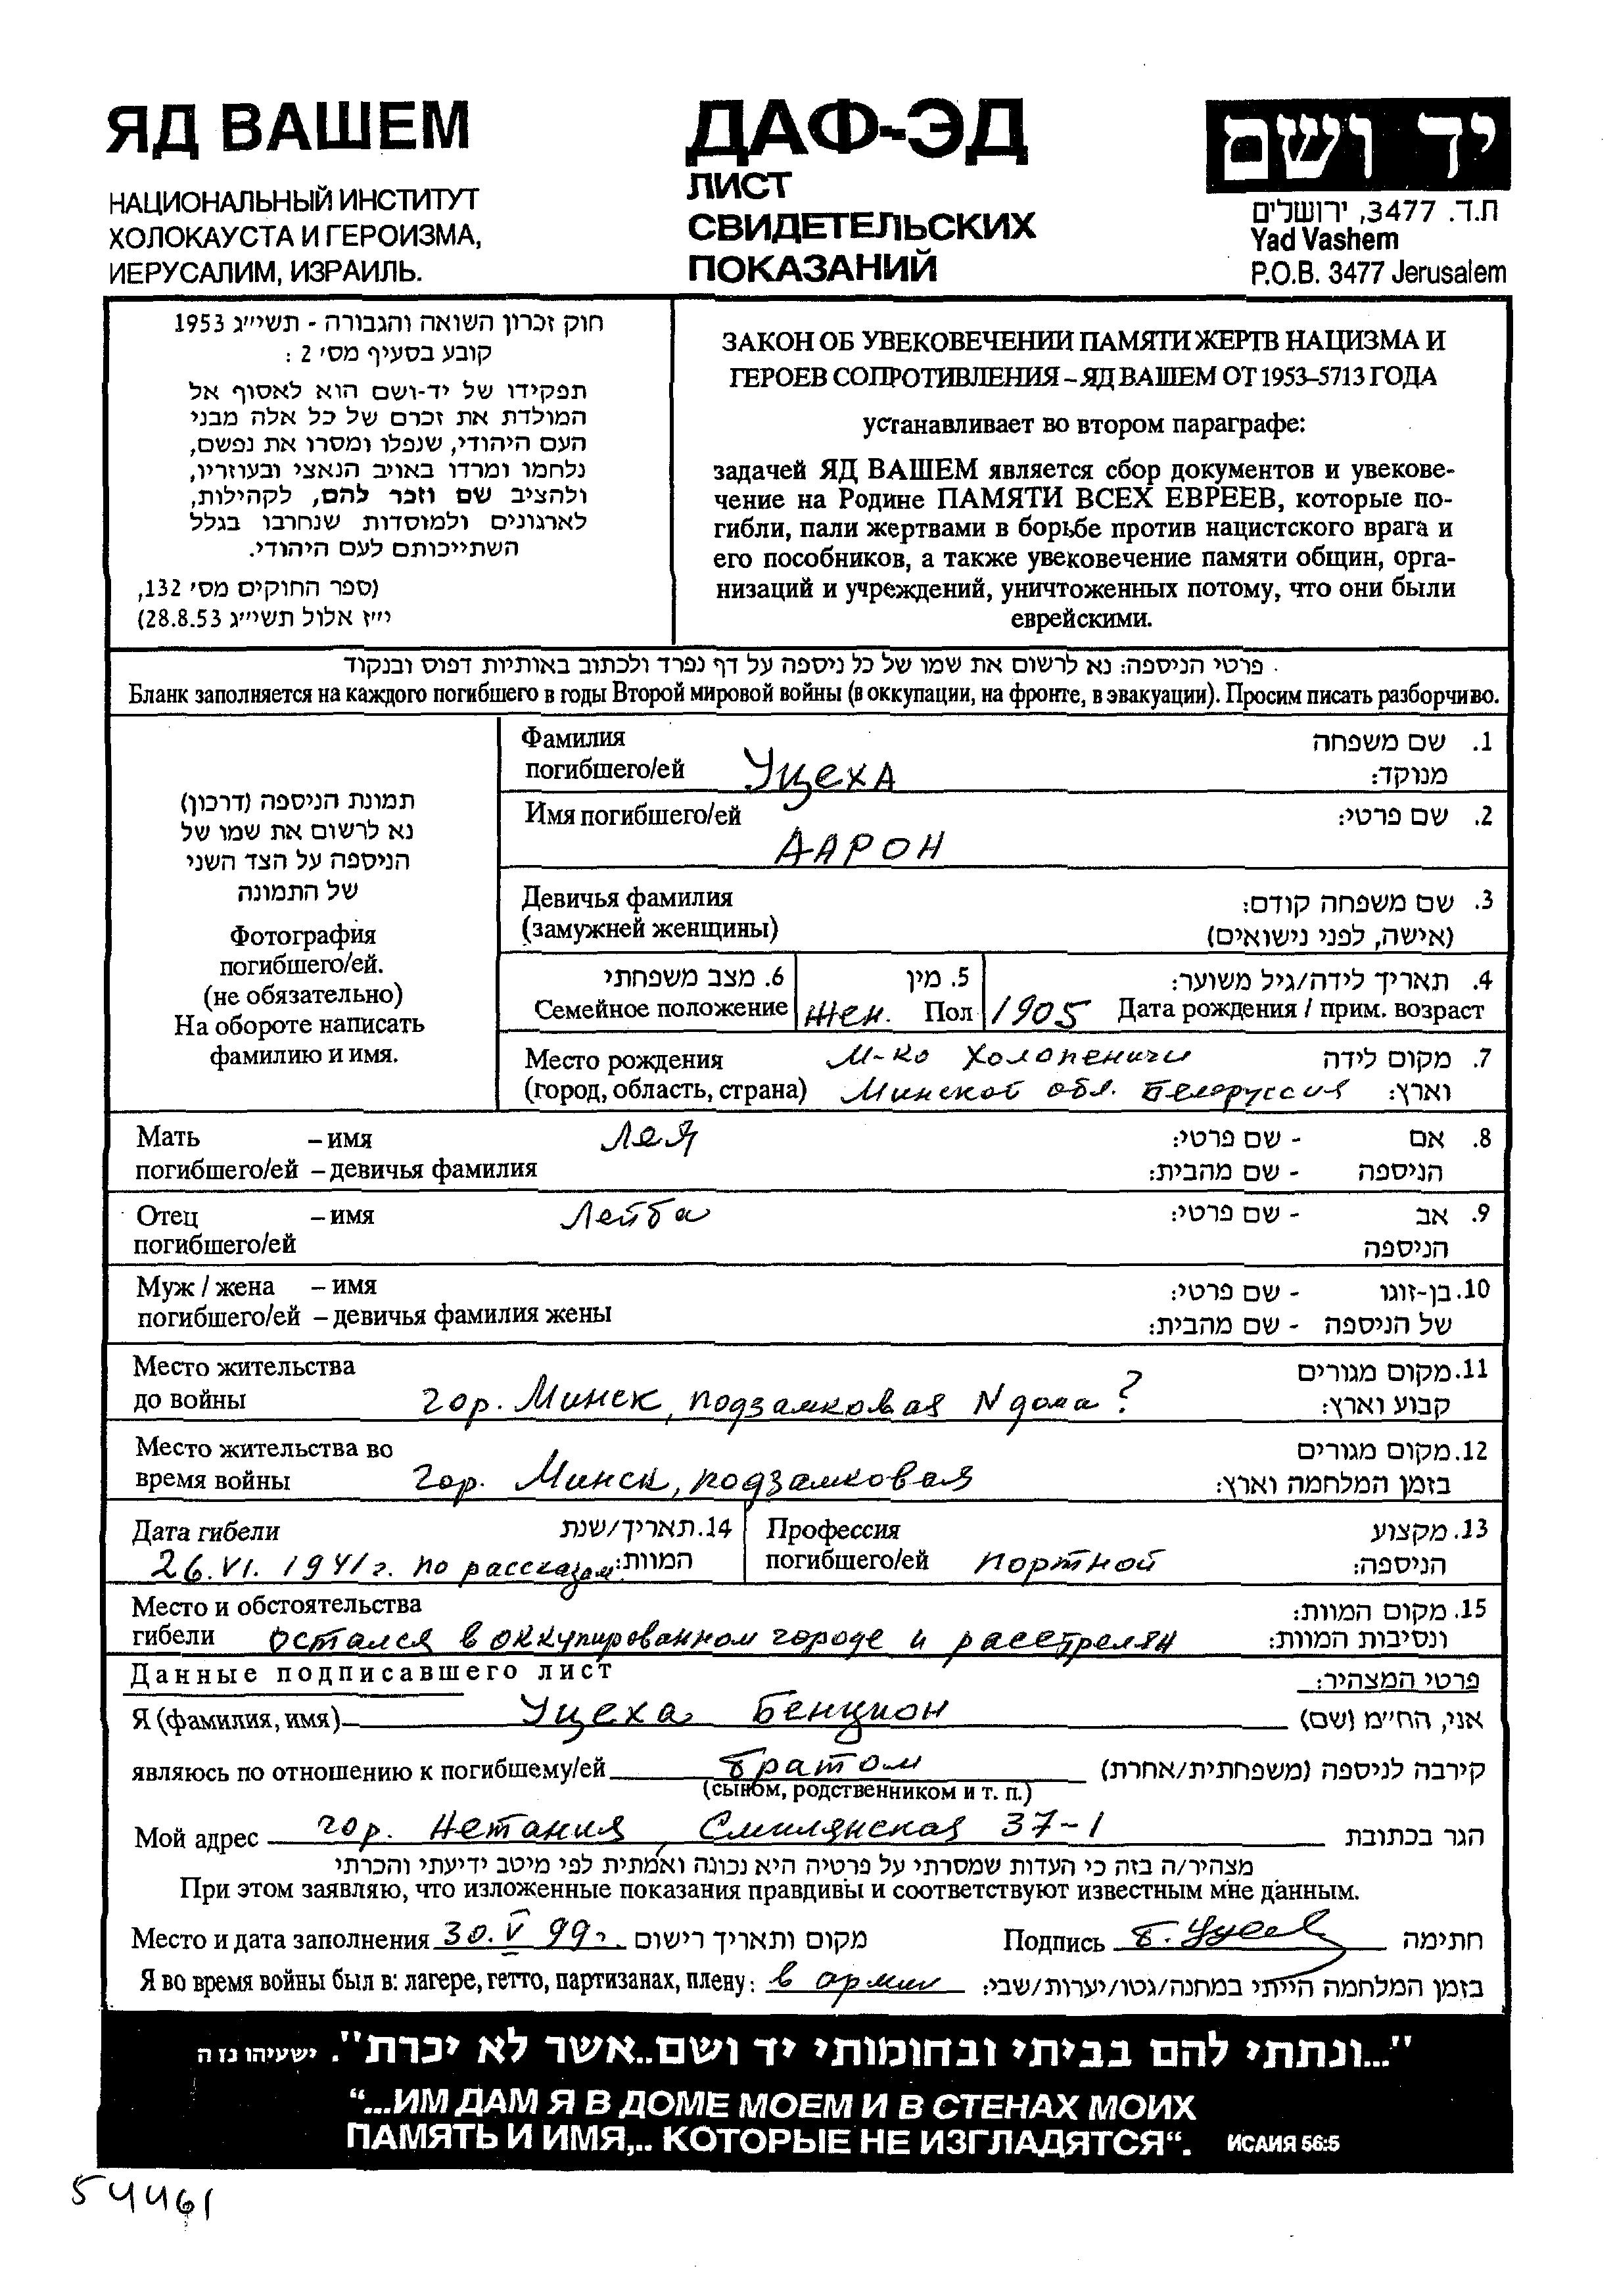 ЯД ВАШЕМ
НАЦИОНАЛЬНЫЙ ИНСТИТУТ
ХОЛОКАУСТА И ГЕРОИЗМА,
ИЕРУСАЛИМ, ИЗРАИЛЬ.
ДАФ-ЭД
ЛИСТ
СВИДЕТЕЛЬСКИХ
ПОКАЗАНИЙ
יד ושם
ת.ד. 3477, ירושלים
Yad Vashem
P.O.B. 3477 Jerusalem
חוק זכרון השואה והגבורה - תשי״ג 1953
קובע בסעיף מס׳ 2 :
תפקידו של יד-ושם הוא לאסוף אל
המולדת את זכרם של כל אלה מבני
העם היהודי, שנפלו ומסרו את נפשם,
נלחמו ומרדו באויב הנאצי ובעוזריו,
ולהציב שם וזכר להם, לקהילות,
לארגונים ולמוסדות שנחרבו בגלל
השתייכותם לעם היהודי.
(ספר החוקים מס׳ 132,
י״ז אלול תשי״ג 28.8.53)
ЗАКОН ОБ УВЕКОВЕЧЕНИИ ПАМЯТИ ЖЕРТВ НАЦИЗМА И
ГЕРОЕВ СОПРОТИВЛЕНИЯ – ЯД ВАШЕМ ОТ 1953–5713 ГОДА
устанавливает во втором параграфе:
задачей ЯД ВАШЕМ является сбор документов и увекове-
чение на Родине ПАМЯТИ ВСЕХ ЕВРЕЕВ, которые по-
гибли, пали жертвами в борьбе против нацистского врага и
его пособников, а также увековечение памяти общин, орга-
низаций и учреждений, уничтоженных потому, что они были
еврейскими.
פרטי הניספה: נא לרשום את שמו של כל ניספה על דף נפרד ולכתוב באותיות דפוס ובנקוד
Бланк заполняется на каждого погибшего в годы Второй мировой войны (в оккупации, на фронте, в эвакуации). Просим писать разборчиво.
תמונת הניספה (דרכון)
נא לרשום את שמו של
הניספה על הצד השני
של התמונה
Фотография
погибшего/ей.
(не обязательно)
На обороте написать
фамилию и имя.
Фамилия 1. שם משפחה
погибшего/ей Уцеха מנוקד:
Имя погибшего/ей 2. שם פרטי:
ААРОН
Девичья фамилия 3. שם משפחה קודם:
(замужней женщины) (אישה, לפני נישואים)
6. מצב משפחתי 5. מין 4. תאריך לידה/גיל משוער:
Семейное положение жен. Пол 1905 Дата рождения / прим. возраст
Место рождения м-ко Холопеничи 7. מקום לידה
(город, область, страна) Минской обл. Белоруссия וארץ:
Мать – имя Лея - שם פרטי: 8. אם
погибшего/ей – девичья фамилия - שם מהבית: הניספה
Отец – имя Лейба - שם פרטי: 9. אב
погибшего/ей הניספה
Муж / жена – имя - שם פרטי: 10. בן-זוגו
погибшего/ей – девичья фамилия жены - שם מהבית: של הניספה
Место жительства 11. מקום מגורים
до войны гор. Минск, подзамковая N дома? קבוע וארץ:
Место жительства во 12. מקום מגורים
время войны гор. Минск, подзамковая בזמן המלחמה וארץ:
Дата гибели 14. תאריך/שנת Профессия 13. מקצוע
26.VI. 1941г. по рассказам המוות: погибшего/ей портной הניספה:
Место и обстоятельства 15. מקום המוות:
гибели остался в оккупированном городе и расстрелян ונסיבות המוות:
Данные подписавшего лист פרטי המצהיר:
Я (фамилия, имя) Уцеха Бенцион אני, הח״מ (שם)
являюсь по отношению к погибшему/ей братом קירבה לניספה (משפחתית/אחרת)
(сыном, родственником и т. п.)
Мой адрес гор. Нетания, Смилянская 37-1 הגר בכתובת
מצהיר/ה בזה כי העדות שמסרתי על פרטיה היא נכונה ואמתית לפי מיטב ידיעתי והכרתי
При этом заявляю, что изложенные показания правдивы и соответствуют известным мне данным.
Место и дата заполнения 30.V 99г. מקום ותאריך רישום Подпись Б. חתימה
Я во время войны был в: лагере, гетто, партизанах, плену: в армии בזמן המלחמה הייתי במחנה/גטו/יערות/שבי:
"...ונתתי להם בביתי ובחומותי יד ושם..אשר לא יכרת". ישעיהו נז ה
“...ИМ ДАМ Я В ДОМЕ МОЕМ И В СТЕНАХ МОИХ
ПАМЯТЬ И ИМЯ,.. КОТОРЫЕ НЕ ИЗГЛАДЯТСЯ“. ИСАИЯ 56:5
54461